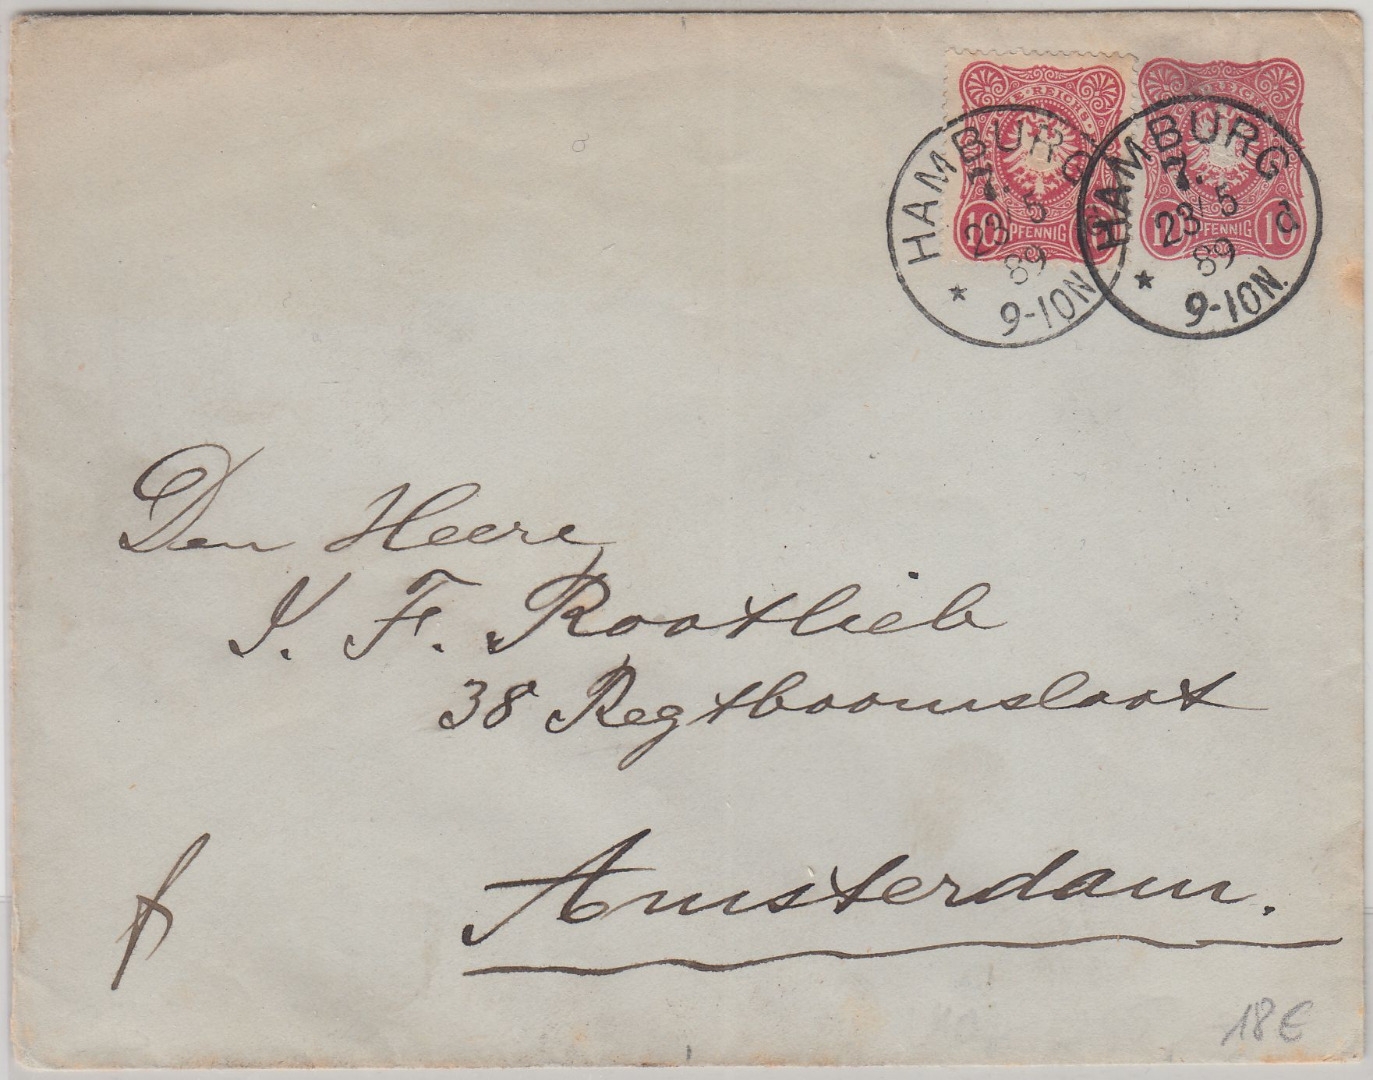 REICHS
10 PFENNIG
HAMBURG
7.
23/5
89
9-10N
REICHS
10 PFENNIG 10
HAMBURG
7. d
23/5
89
9-10N.
Den Heere
J. F. Rootlieb
38 Regtboomsloot
Amsterdam.
18 €